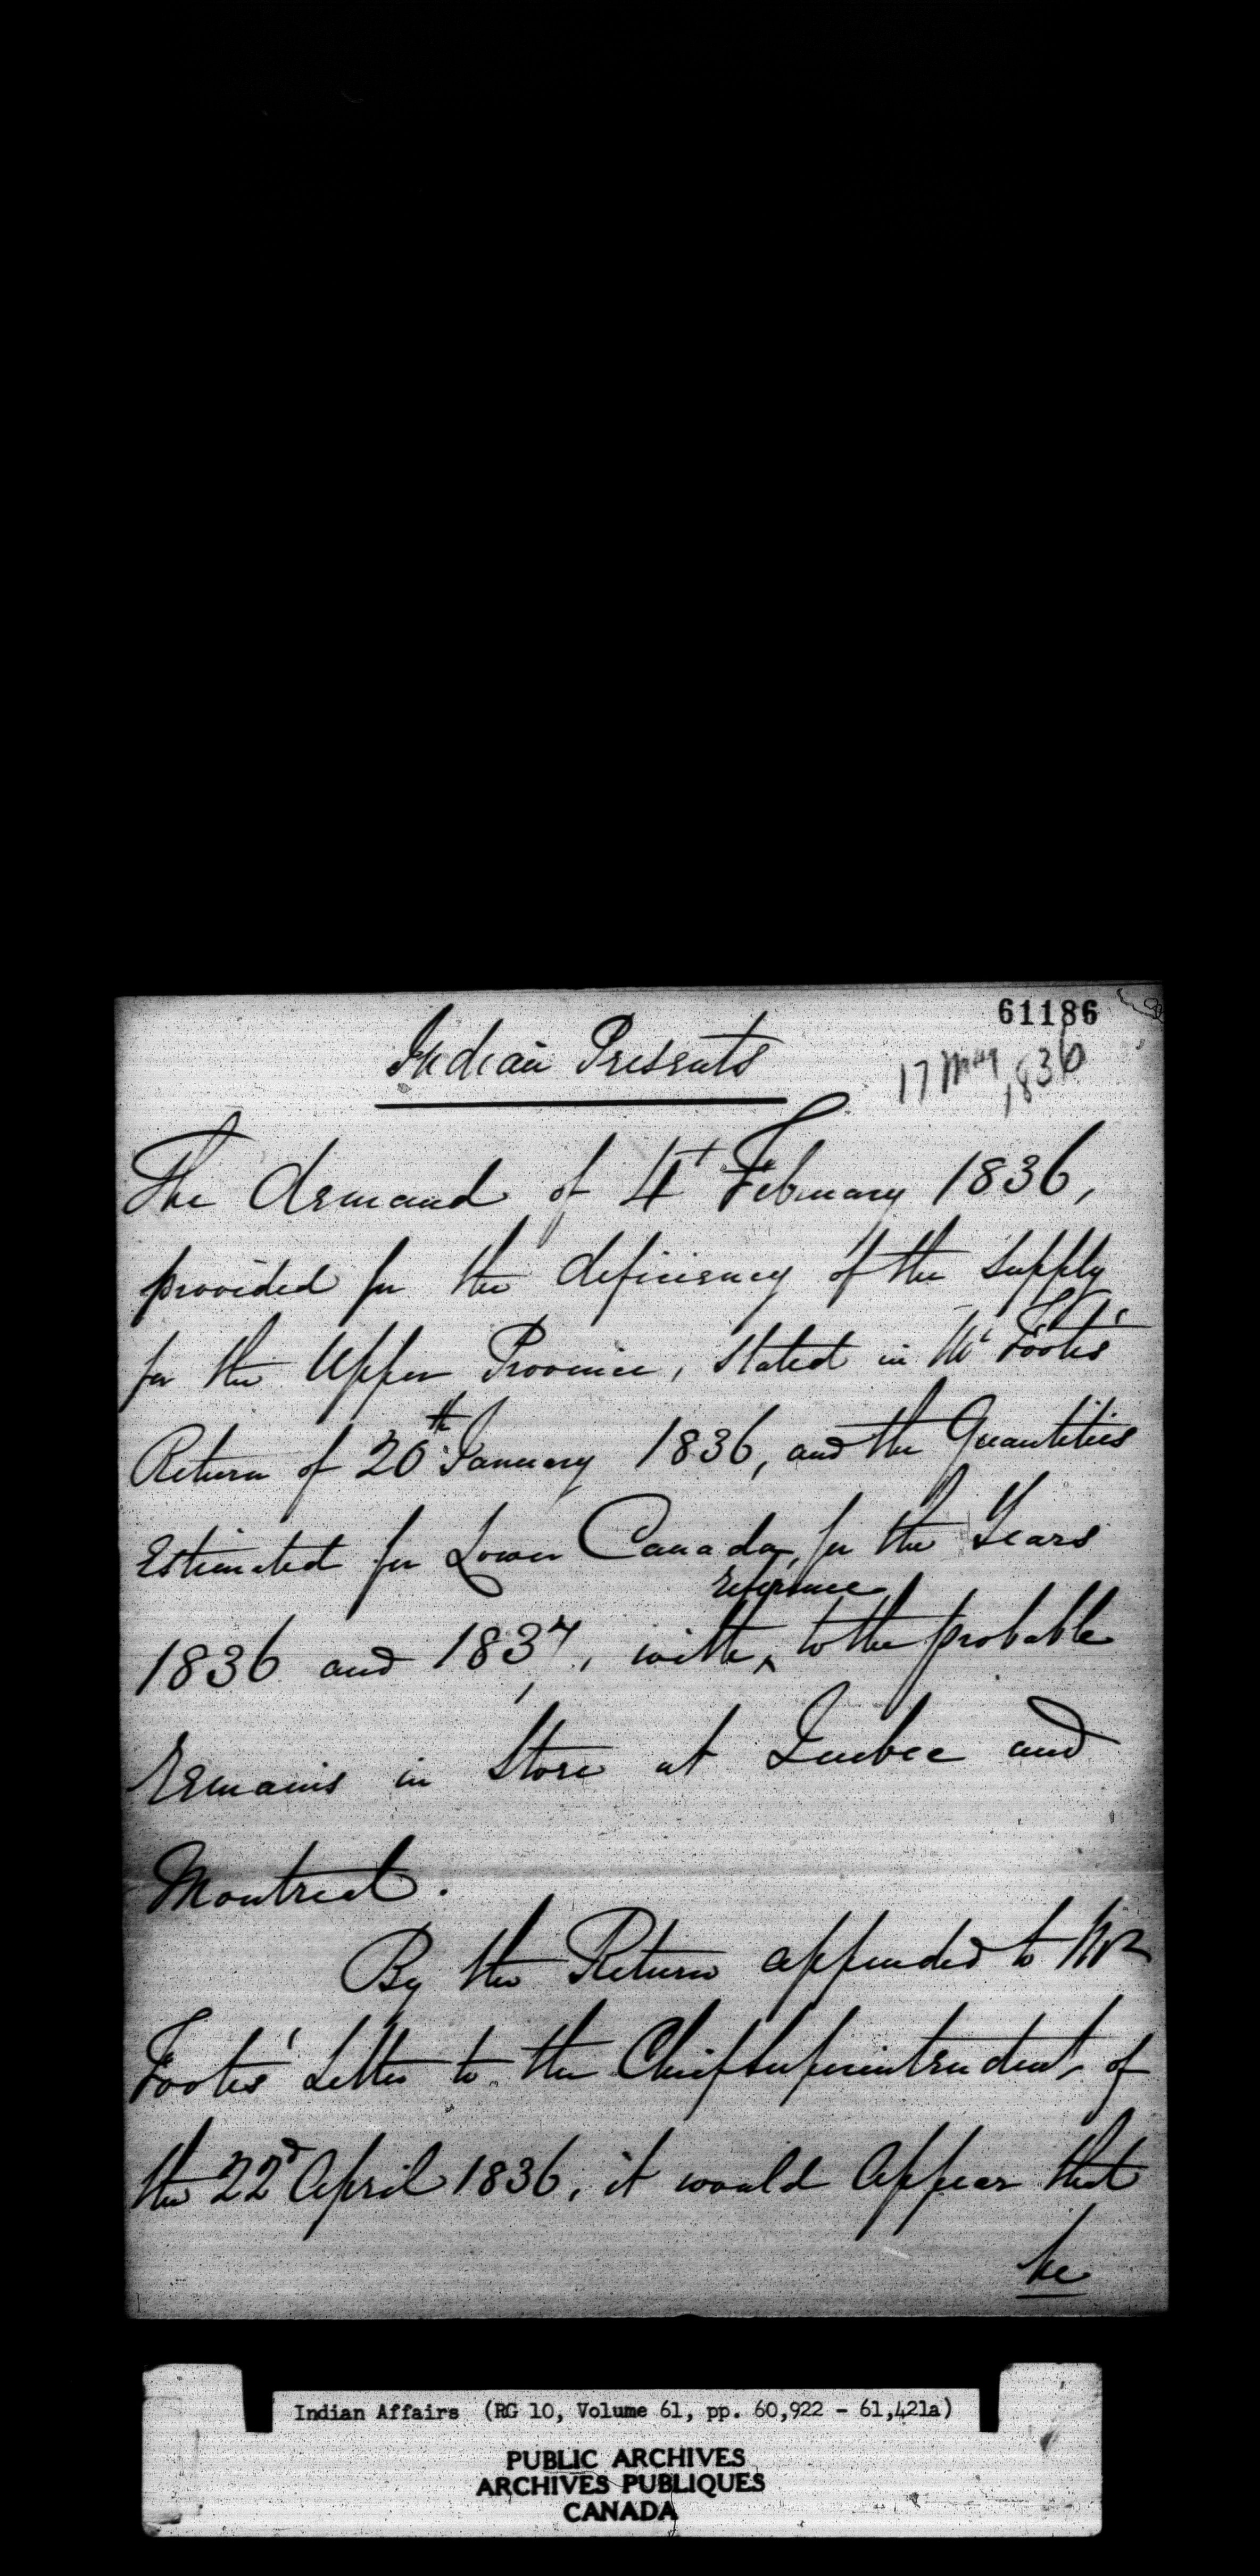 61186
Indian Presents
17 May 1836
The demand of 4t February 1836,
provided for the deficiency of the supply
for the Upper Province, stated in Mr Footes'
Return of 20th January 1836, and the Quantities
Estimated for Lower Canada, for the Years
reference
1836 and 1837, with ^ to the probable
remains in Store at Quebec and
Montreal.
By the Return appended to Mr
Footes' Letter to the Chief Superintendent of
the 22d April 1836, it would appear that
he
Indian Affairs (RG 10, Volume 61, pp. 60,922 - 61,421a)
PUBLIC ARCHIVES
ARCHIVES PUBLIQUES
CANADA